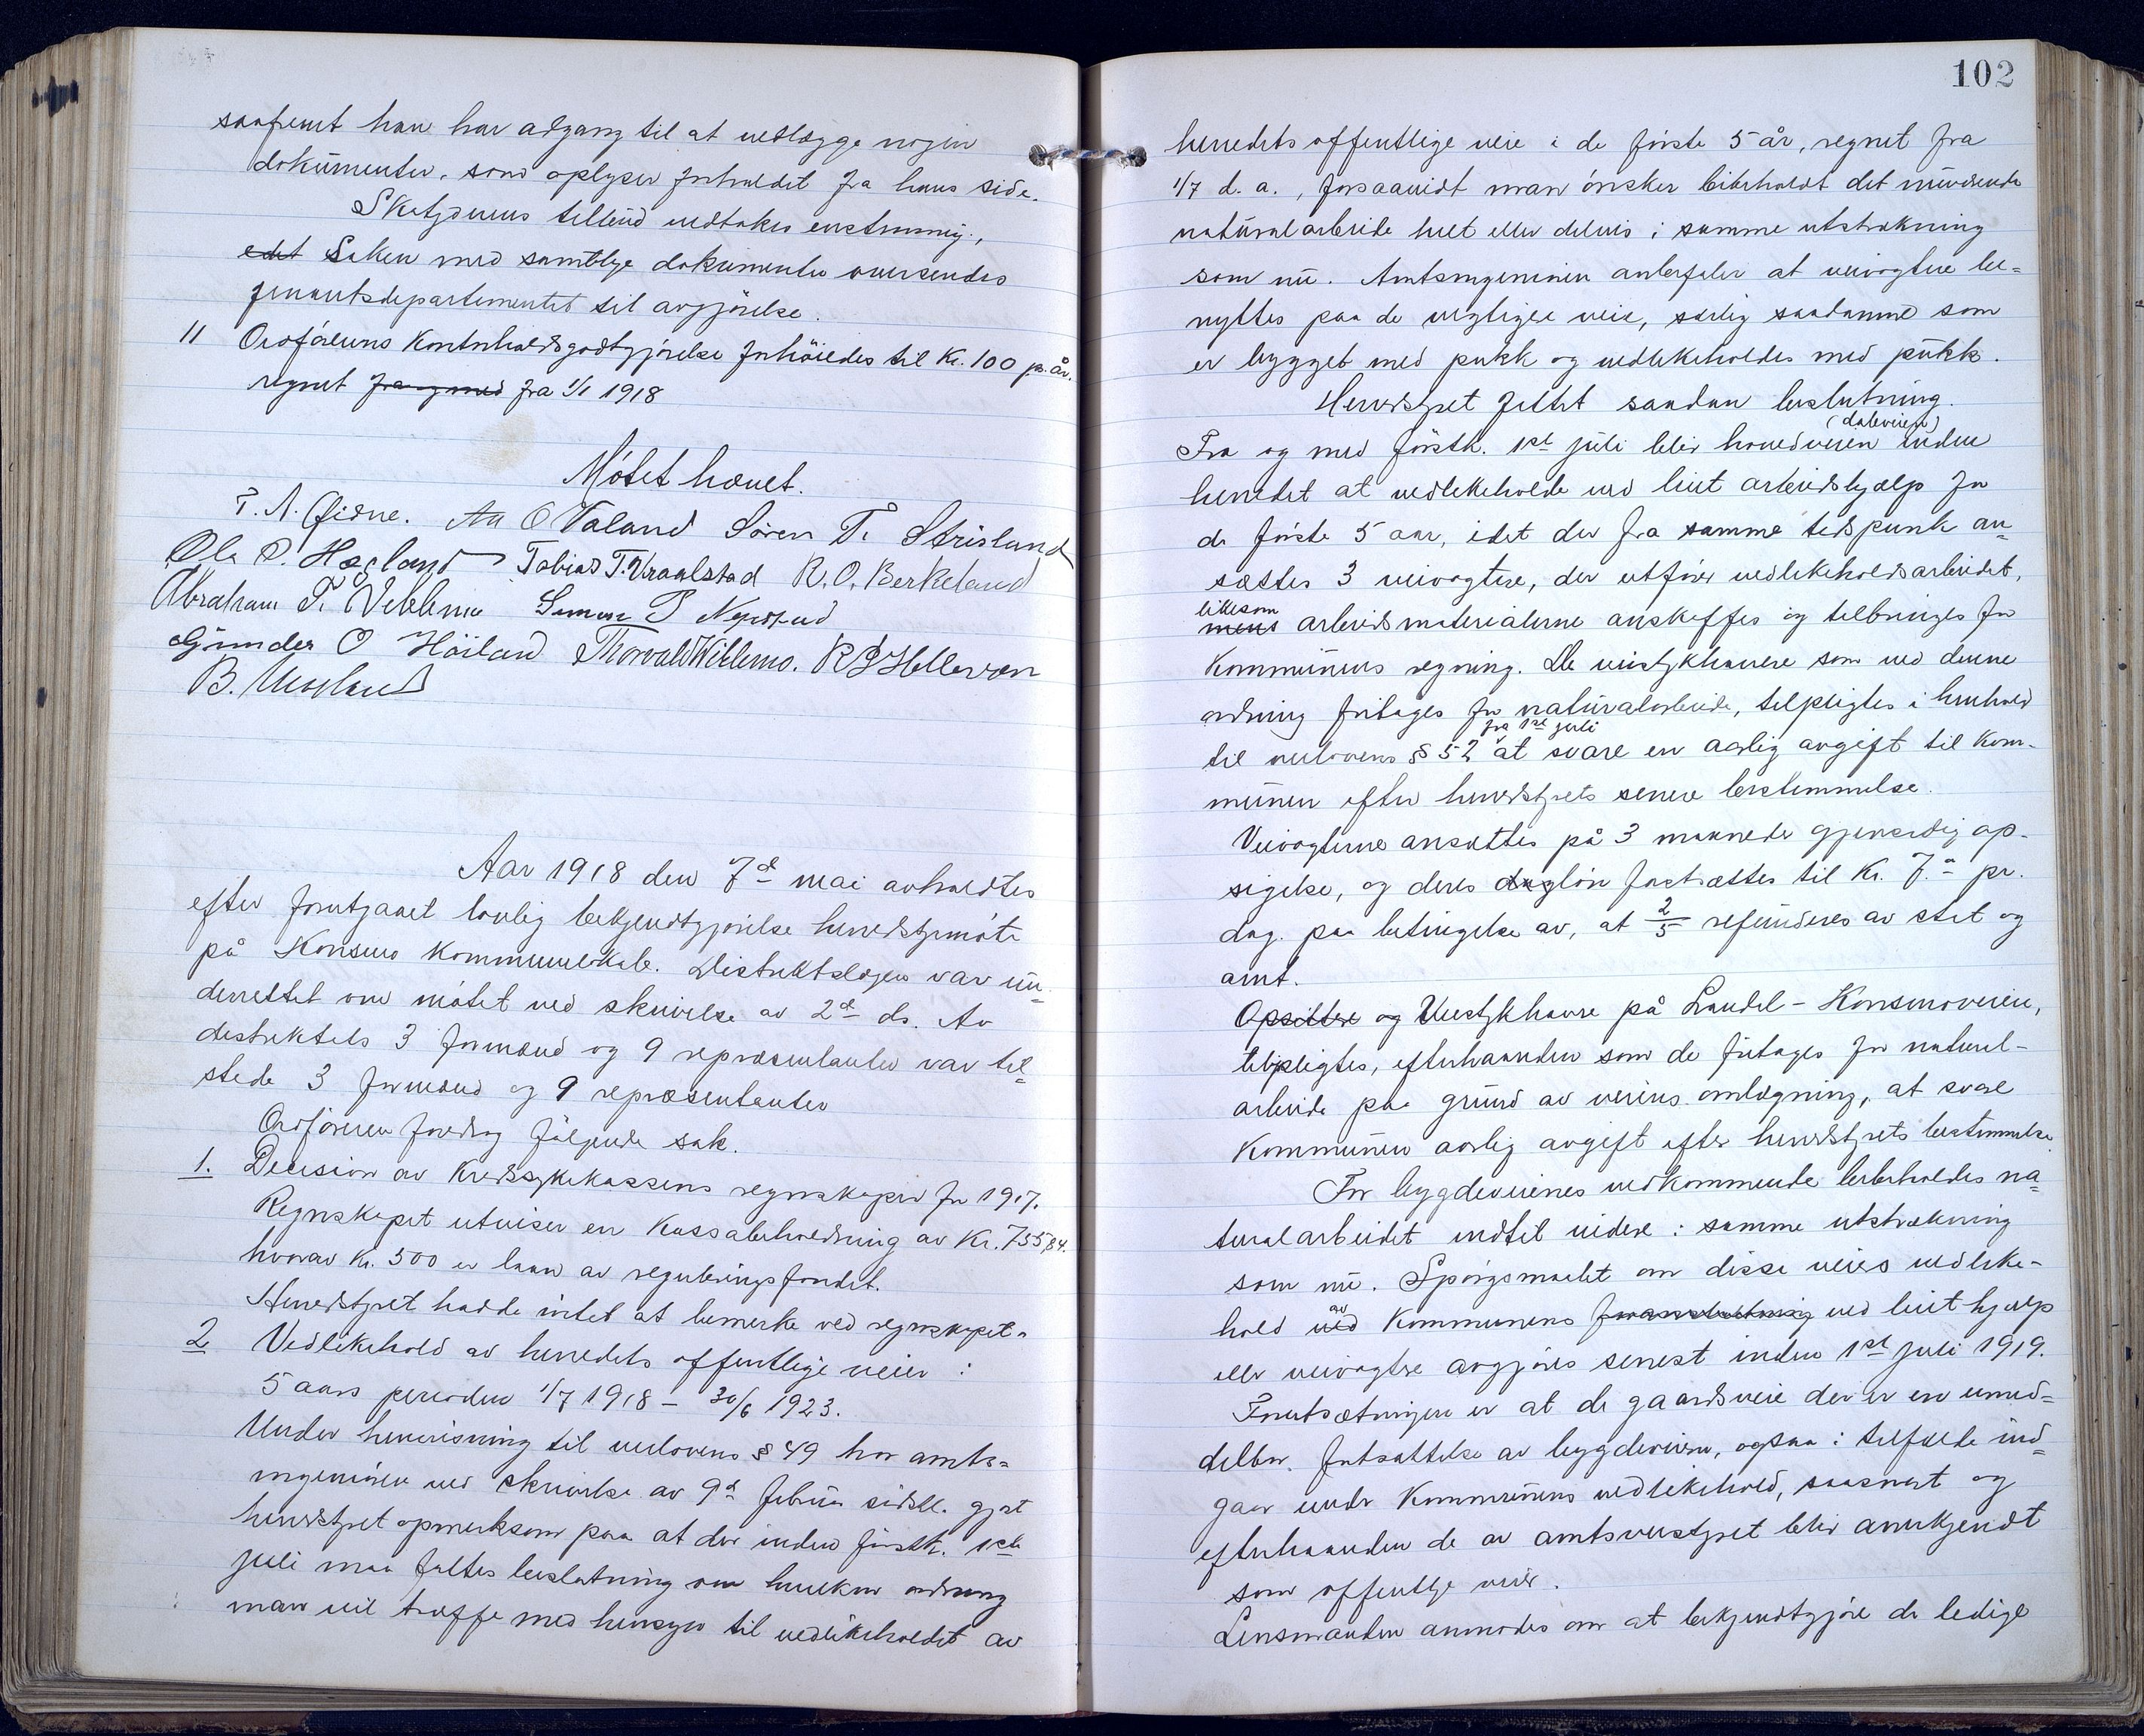 saafremt han har adgang til at vedlægge nogen
dokumenter, som oplyser forholdet fra hans side.
Skatjarens tillæg vedtakes enstemmig,
edet Saken med samtlige dokumenter oversendes
finantsdepartementet til avgjørelse.
11 Ordførerens Kontorholdsgodtgjørelse forhøiedes til Kr. 100 p. år.
regnet fra og med fra 1/1 1918
Møtet hævet.
T. A. Eidne. Aa O Valand Søren T. Strisland
Ole O. Høgland Tobias T. Vraalstad R. O. Berkeland
Abraham T. Veblemo Simon P Nepstad
Gunder O Høiland Thorvald Viblemo. R J Helleren
B. Udland
Aar 1918 den 7d mai avholdtes
efter forutgaaet lovlig bekjendtgjørelse herredstyremøte
på Konsmo Kommunelokale. Distriktslægen var un-
derrettet om møtet ved skrivelse av 2d ds. Av
distriktets 3 formænd og 9 repræsentanter var til-
stede 3 formænd og 9 repræsentanter
Ordføreren foredrog følgende sak.
1. Decision av Kredssykekassens regnskaper for 1917.
Regnskapet utviser en Kassabeholdning av Kr. 755,84.
hvorav Kr. 500 er laan av reguleringsfondet.
Herredstyret hadde intet at bemerke ved regnskapet.
2 Vedlikehold av herredets offentlige veier i
5 aars perioden 1/7 1918 – 30/6 1923.
Under henvisning til veilovens § 49 har amts-
ingeniøren ved skrivelse av 9d februar sidstl. gjort
herredstyret opmerksom paa at der inden førstk. 1ste
juli maa fattes beslutning om hvilken ordning
man vil træffe med hensyn til vedlikeholdet av
102
herredets offentlige veie i de første 5 år, regnet fra
1/7 d. a., forsaavidt man ønsker bibeholdt det nuværende
naturalarbeide helt eller delvis i samme utstrækning
som nu. Amtsingeniøren anbefaler at veivogtere be-
nyttes paa de vigtigere veie, særlig saadanne som
er bygget med pukk og vedlikeholdes med pukk.
Herredstyret fattet saadan beslutning.
(daleveien)
Fra og med førstk. 1st juli blir hovedveien inden
herredet at vedlikeholde ved leiet arbeidshjælp for
de første 5 aar, idet der fra samme tidspunk an-
sættes 3 veivogtere, der utfører vedlikeholdsarbeidet,
likesom
mens arbeidsmaterialerne anskaffes og tilbringes for
Kommunens regning. De veistykhavere som ved denne
ordning fritages for naturalarbeide, tilpligtes i henhold
fra 1st juli
til veilovens § 52 at svare en aarlig avgift til Kom-
munen efter herredstyrets senere bestemmelse.
Veivogterne ansættes på 3 maaneders gjensidig op-
sigelse, og deres dagløn fastsættes til Kr. 7.- pr.
dag. paa betingelse av, at 2/5 refunderes av stat og
amt.
Opsittere og Veistykhavere på Laudal – Konsmoveien,
tilpligtes, efterhaanden som de fritages for natural-
arbeide paa grund av veiens omlægning, at svare
Kommunen aarlig avgift efter herredstyrets bestemmelse.
For bygdeveienes vedkommende bibeholdes na-
turalarbeidet indtil videre i samme utstrækning
som nu. Spørgsmaalet om disse veies vedlike-
av
hold ved Kommunens foranstaltning ved leiet hjælp
eller veivogtere avgjøres senest inden 1st juli 1919.
Forutsætningen er at de gaardsveie der er en umid-
delbar fortsættelse av bygdeveien, ogsaa i tilfælde ind-
gaar under Kommunens vedlikehold, saasnart og
efterhaanden de av amtsveistyret blir anerkjendt
som offentlige veie.
Lensmanden anmodes om at bekjendtgjøre de ledige